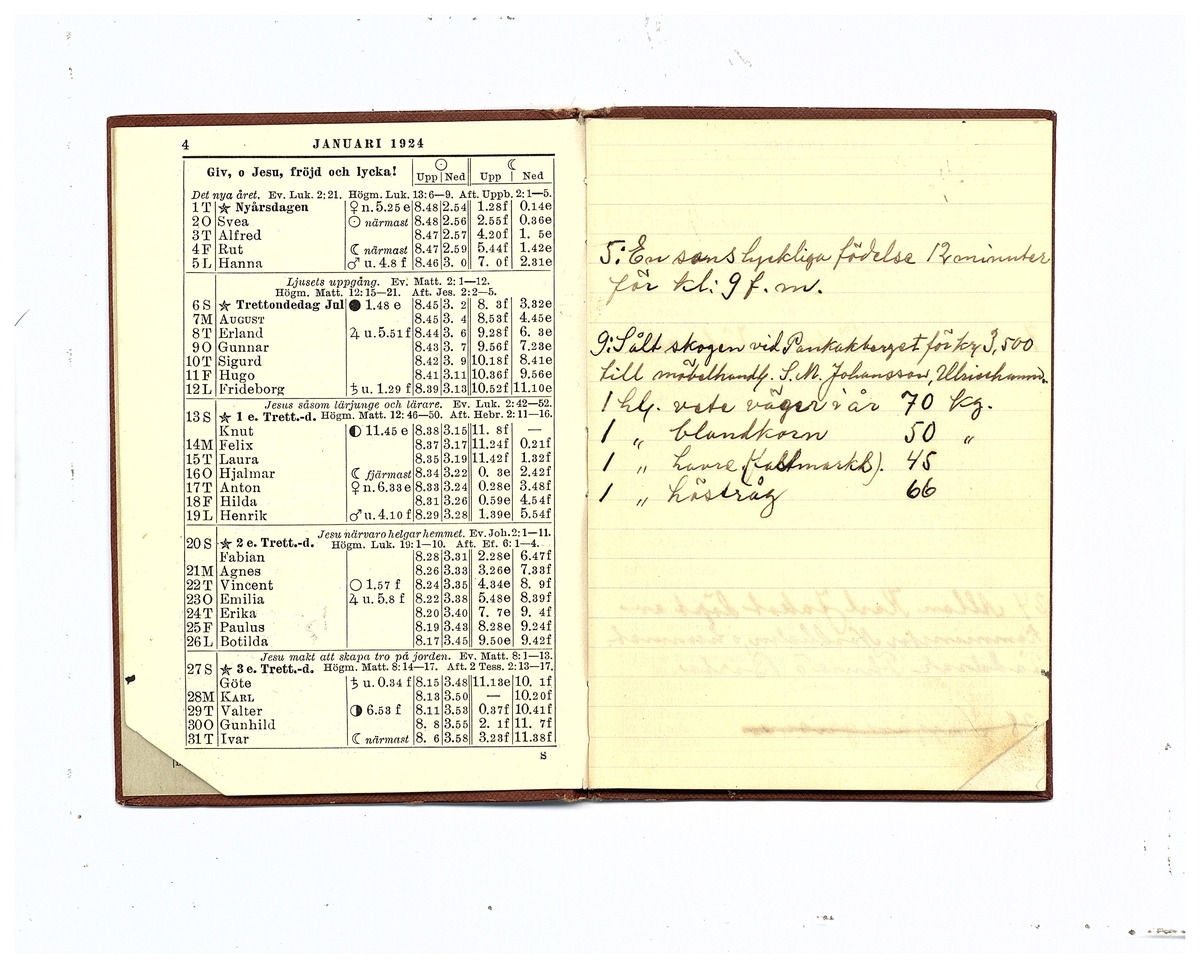 4 JANUARI 1924
Giv, o Jesu, fröjd och lycka! ☉ ☾
Upp Ned Upp Ned
Det nya året. Ev. Luk. 2:21. Högm. Luk. 13:6—9. Aft. Uppb. 2:1—5.
1 T ★ Nyårsdagen ♀ n. 5.25 e 8.48 2.54 1.28f 0.14e
2 O Svea ☉ närmast 8.48 2.56 2.55f 0.36e
3 T Alfred 8.47 2.57 4.20f 1. 5e
4 F Rut ☾ närmast 8.47 2.59 5.44f 1.42e
5 L Hanna ♂ u. 4.8 f 8.46 3. 0 7. 0f 2.31e
Ljusets uppgång. Ev. Matt. 2:1—12.
Högm. Matt. 12:15—21. Aft. Jes. 2:2—5.
6 S ★ Trettondedag Jul ● 1.48 e 8.45 3. 2 8. 3f 3.32e
7 M AUGUST 8.45 3. 4 8.53f 4.45e
8 T Erland ♃ u. 5.51 f 8.44 3. 6 9.28f 6. 3e
9 O Gunnar 8.43 3. 7 9.56f 7.23e
10 T Sigurd 8.42 3. 9 10.18f 8.41e
11 F Hugo 8.41 3.11 10.36f 9.56e
12 L Frideborg ♄ u. 1.29 f 8.39 3.13 10.52f 11.10e
Jesus såsom lärjunge och lärare. Ev. Luk. 2:42—52.
13 S ★ 1 e. Trett.-d. Högm. Matt. 12:46—50. Aft. Hebr. 2:11—16.
Knut ◐ 11.45 e 8.38 3.15 11. 8f —
14 M Felix 8.37 3.17 11.24f 0.21f
15 T Laura 8.35 3.19 11.42f 1.32f
16 O Hjalmar ☾ fjärmast 8.34 3.22 0. 3e 2.42f
17 T Anton ♀ n. 6.33 e 8.33 3.24 0.28e 3.48f
18 F Hilda 8.31 3.26 0.59e 4.54f
19 L Henrik ♂ u. 4.10 f 8.29 3.28 1.39e 5.54f
Jesu närvaro helgar hemmet. Ev. Joh. 2:1—11.
20 S ★ 2 e. Trett.-d. Högm. Luk. 19:1—10. Aft. Ef. 6:1—4.
Fabian 8.28 3.31 2.28e 6.47f
21 M Agnes 8.26 3.33 3.26e 7.33f
22 T Vincent ○ 1.57 f 8.24 3.35 4.34e 8. 9f
23 O Emilia ♃ u. 5.8 f 8.22 3.38 5.48e 8.39f
24 T Erika 8.20 3.40 7. 7e 9. 4f
25 F Paulus 8.19 3.43 8.28e 9.24f
26 L Botilda 8.17 3.45 9.50e 9.42f
Jesu makt att skapa tro på jorden. Ev. Matt. 8:1—13.
27 S ★ 3 e. Trett.-d. Högm. Matt. 8:14—17. Aft. 2 Tess. 2:13—17.
Göte ♄ u. 0.34 f 8.15 3.48 11.13e 10. 1f
28 M KARL 8.13 3.50 — 10.20f
29 T Valter ◑ 6.53 f 8.11 3.53 0.37f 10.41f
30 O Gunhild 8. 8 3.55 2. 1f 11. 7f
31 T Ivar ☾ närmast 8. 6 3.58 3.23f 11.38f
S
5: En sons lyckliga födelse 12 minuter
för kl: 9 f. m.
9: Sålt skogen vid Pankakberget för kr 3,500
till möbelhandl. S. M. Johansson, Ulricehamn.
1 hl. vete väger i år 70 kg.
1 " blandkorn 50 "
1 " havre 45
1 " höstråg 66